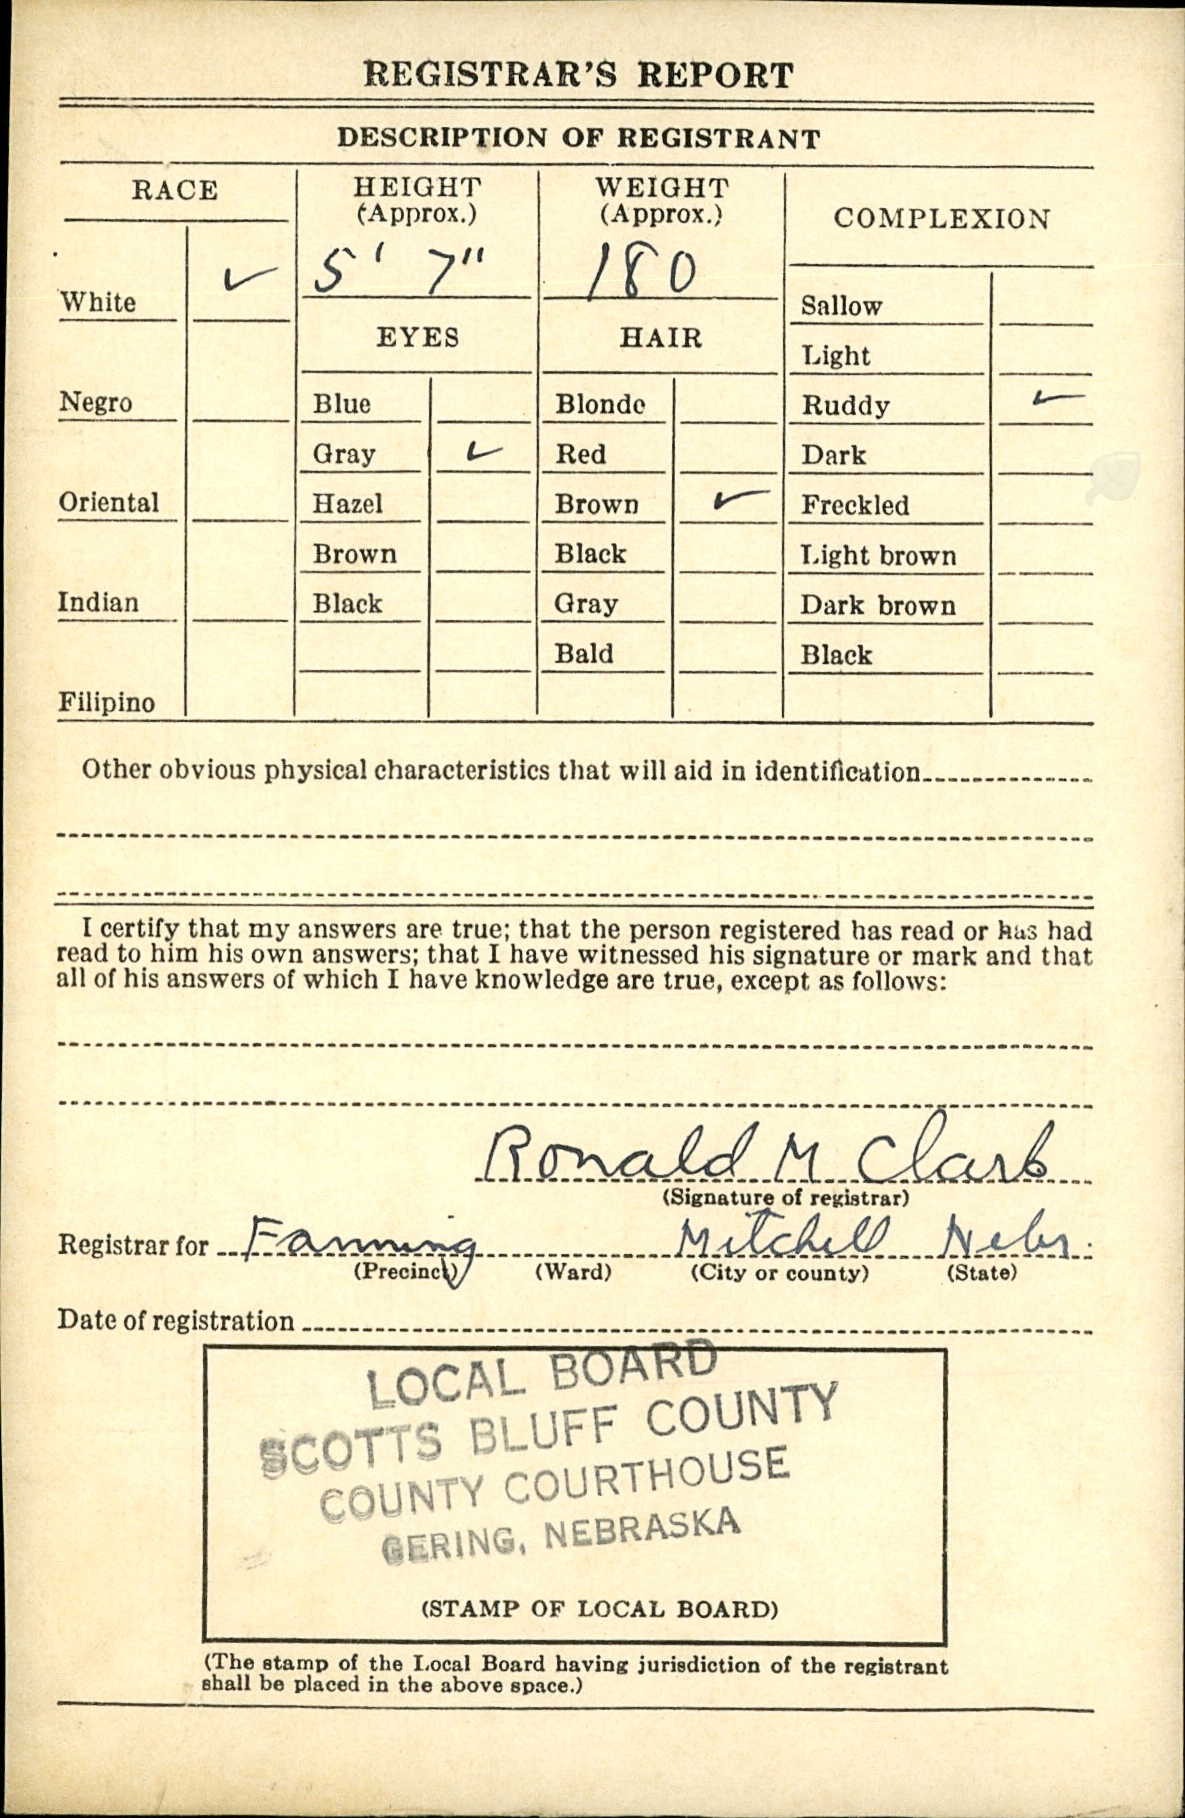 REGISTRAR'S REPORT
DESCRIPTION OF REGISTRANT
RACE
HEIGHT
(Approx.)
WEIGHT
(Approx.)
COMPLEXION
White ✓
5' 7"
180
Sallow
EYES
HAIR
Light
Negro
Blue
Blonde
Ruddy ✓
Gray ✓
Red
Dark
Oriental
Hazel
Brown ✓
Freckled
Brown
Black
Light brown
Indian
Black
Gray
Dark brown
Bald
Black
Filipino
Other obvious physical characteristics that will aid in identification
I certify that my answers are true; that the person registered has read or has had
read to him his own answers; that I have witnessed his signature or mark and that
all of his answers of which I have knowledge are true, except as follows:
Ronald M Clark
(Signature of registrar)
Registrar for Fanning Mitchell Nebr.
(Precinct) (Ward) (City or county) (State)
Date of registration
LOCAL BOARD
SCOTTS BLUFF COUNTY
COUNTY COURTHOUSE
GERING, NEBRASKA
(STAMP OF LOCAL BOARD)
(The stamp of the Local Board having jurisdiction of the registrant
shall be placed in the above space.)